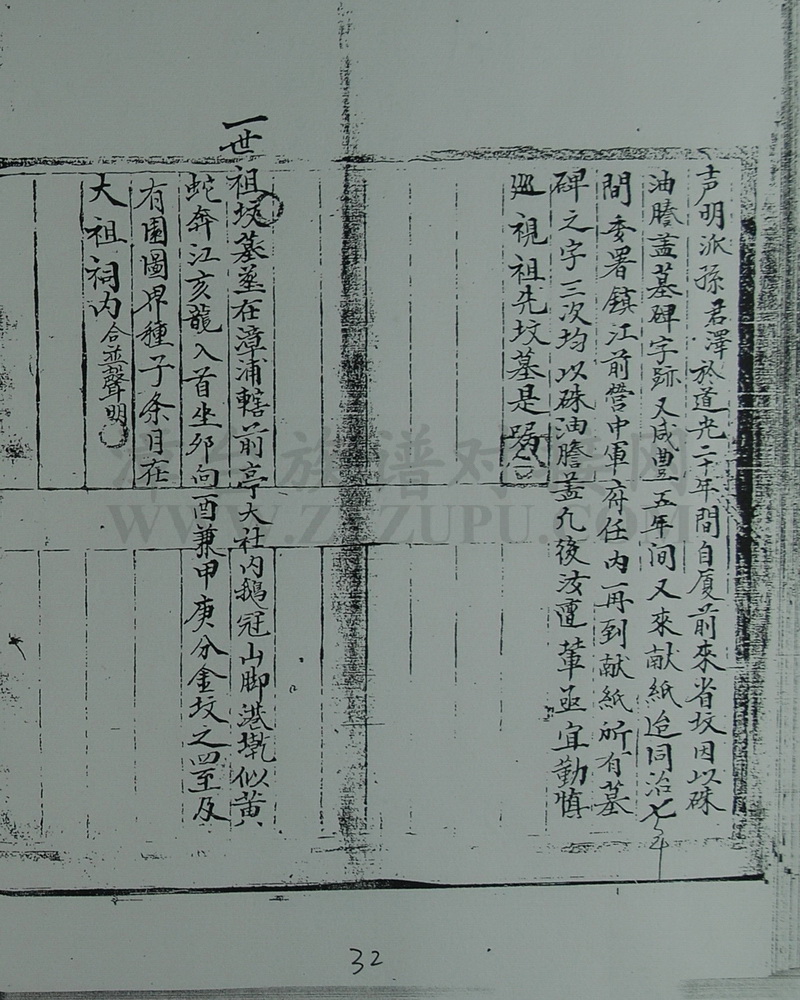 声明派孫君澤於道光二十年間自厦前來省坟因以硃
油謄蓋墓碑字跡又咸豊五年间又來献紙迨同治七年
間委署鎮江前營中軍府任內再到献紙所有墓
碑之字三次均以硃油謄蓋凡後汝遭輩亟宜勤慎
廵視祖先坟墓是囑
一世祖坟墓塟在漳浦轄前亭大社内鵝冠山脚港墘似黄
蛇奔江亥龍入首坐夘向酉兼甲庚分金坟之四至及
有園圖界種子条目在
大祖祠内合並聲明
WWW.ZZZUPU.COM
32